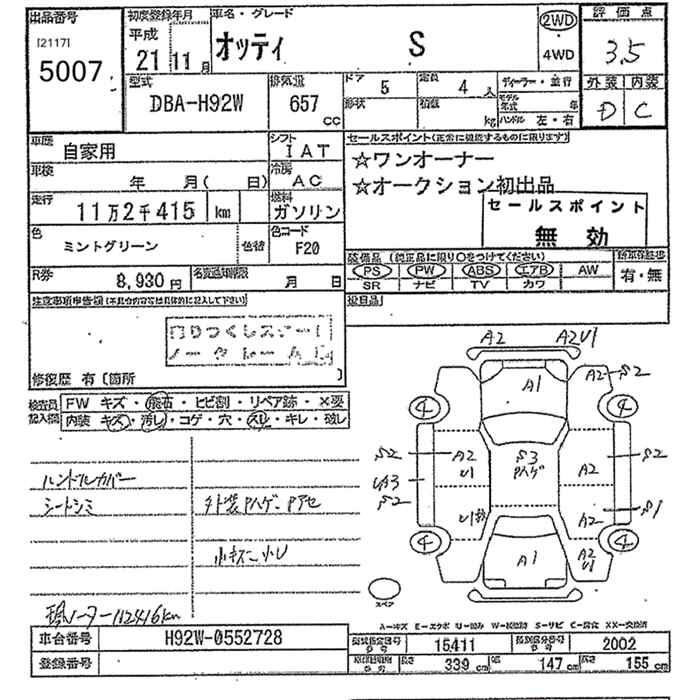 出品番号 初度登録年月 車名・グレード 評価点
[2117] 平成 2WD
5007 21年11月 オッティ S ・ 3.5
4WD
型式 排気量 ドア 5 定員 4人 ディーラー・並行 外装 内装
DBA-H92W 657cc 形状 積載 kg モデル年式 年 D C
ハンドル 左・右
車歴 自家用 シフト IAT セールスポイント(正常に機能するものに限ります)
車検 年 月( 日) 冷房 AC ☆ワンオーナー
☆オークション初出品
走行 11万2千415 km 燃料 ガソリン セールスポイント
無効
色 ミントグリーン 色替 色コード F20
装備品(純正品に限り○をつけてください)
PS PW ABS エアB AW 有・無
SR ナビ TV カワ
R券 8,930円 名変期限 月 日
注意事項申告欄
修復歴 有(箇所 )
検査員 FW キズ・飛石・ヒビ割・リペア跡・×要
記入欄 内装 キズ・汚し・コゲ・穴・スレ・キレ・破レ
A2 A2U1
A1 A2 S2
4 4
S2 A2 U1 S3 Pハゲ A2 S2
UA3
S2
U1 A2 S1
4 4
A1 A2 U1
ハンドルカバー
シートシミ 外装Pハゲ Pアセ
小キズ
スペア
現メーター112416km
A-キズ E-エクボ U-凹み W-板金跡 S-サビ C-腐食 XX-交換済
車台番号 H92W-0552728 型式指定番号 15411 類別区分番号 2002
登録番号 長さ 339cm 幅 147cm 高さ 155cm